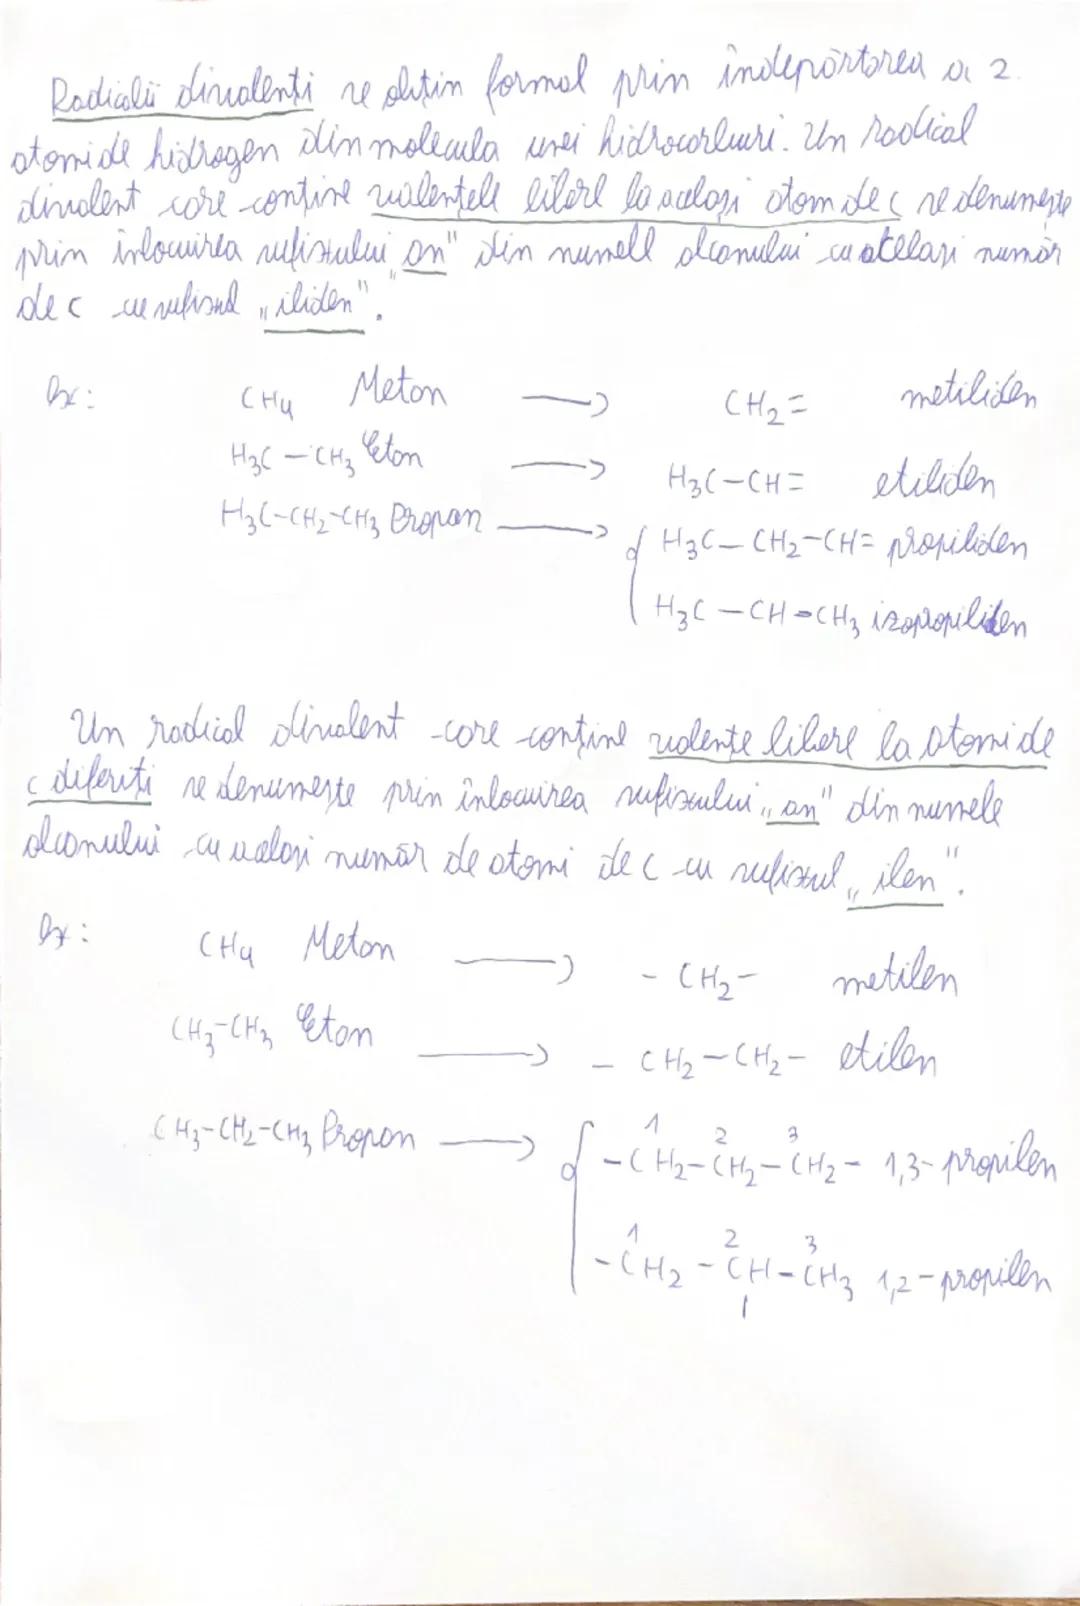 Radicalii divalenți se obțin formal prin îndepărtarea a 2
atomi de hidrogen din molecula unei hidrocarburi. Un radical
divalent care conține valențele libere la același atom de C se denumește
prin înlocuirea sufixului „an" din numele alcanului cu același număr
de C cu sufixul „iliden".
Ex:
CH4 Metan → CH2= metiliden
H3C-CH3 Etan → H3C-CH= etiliden
H3C-CH2-CH3 Propan → H3C-CH2-CH= propiliden
H3C-CH-CH3 izopropiliden
Un radical divalent care conține valențe libere la atomi de
C diferiți se denumește prin înlocuirea sufixului „an" din numele
alcanului cu același număr de atomi de C cu sufixul „ilen".
Ex:
CH4 Metan → -CH2- metilen
CH3-CH3 Etan → -CH2-CH2- etilen
1 2 3
CH3-CH2-CH3 Propan → -CH2-CH2-CH2- 1,3-propilen
1 2 3
-CH2-CH-CH3 1,2-propilen